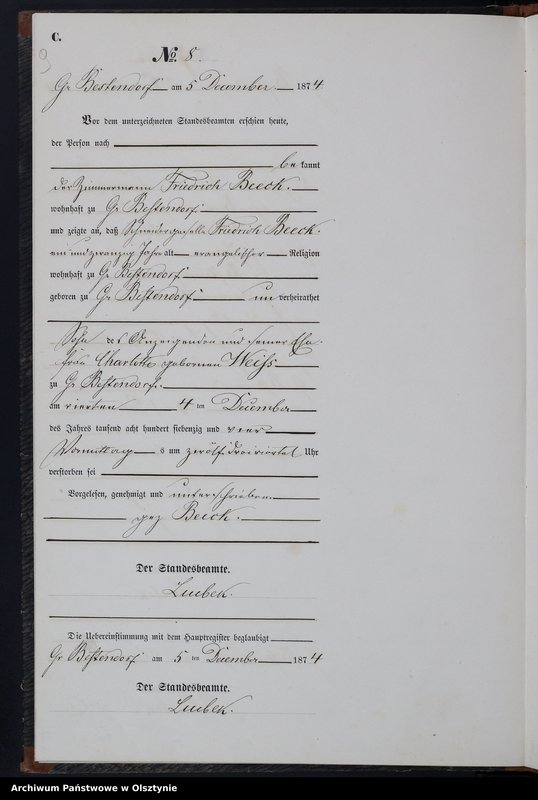 C.
9
No. 8.
Gr. Bestendorf am 5 December 1874
Vor dem unterzeichneten Standesbeamten erschien heute,
der Person nach
be kannt
der Zimmermann Friedrich Beeck.
wohnhaft zu Gr. Bestendorf.
und zeigte an, daß Schneidergeselle Friedrich Beeck.
ein und zwanzig Jahr alt evangelischer Religion
wohnhaft zu Gr. Bestendorf
geboren zu Gr. Bestendorf un verheirathet
Sohn des Anzeigenden und seiner Ehe-
frau Charlotte geborenen Weiss
zu Gr. Bestendorf.
am vierten 4 ten December
des Jahres tausend acht hundert siebenzig und vier
Vormittag s um zwölf dreiviertel Uhr
verstorben sei
Vorgelesen, genehmigt und unterschrieben.
gez Beeck.
Der Standesbeamte.
Lubek.
Die Uebereinstimmung mit dem Hauptregister beglaubigt
Gr. Bestendorf am 5 ten December 1874
Der Standesbeamte.
Lubek.
Archiwum Państwowe w Olsztynie